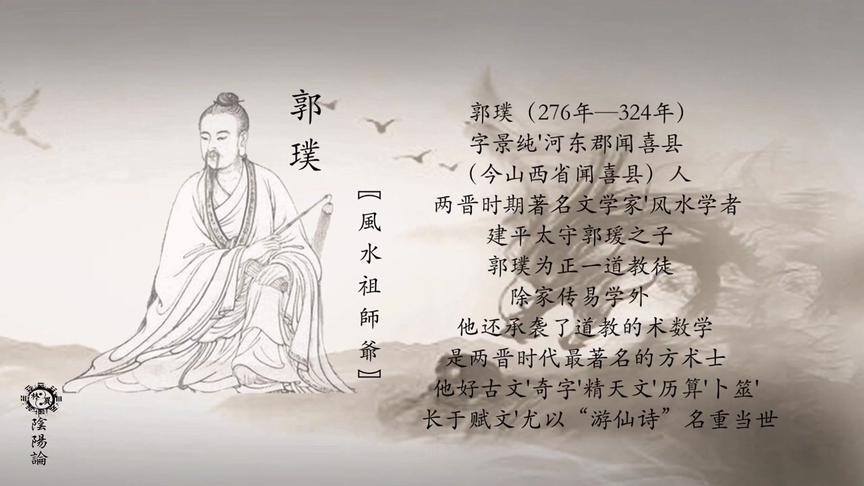 郭璞
【風水祖師爺】
郭璞（276年—324年）
字景纯'河东郡闻喜县
（今山西省闻喜县）人
两晋时期著名文学家'风水学者
建平太守郭瑗之子
郭璞为正一道教徒
除家传易学外
他还承袭了道教的术数学
是两晋时代最著名的方术士
他好古文'奇字'精天文'历算'卜筮'
长于赋文'尤以“游仙诗”名重当世
陰陽論